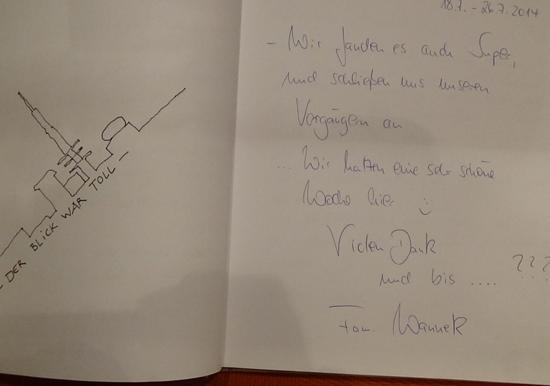 DER BLICK WAR TOLL
18.7. - 26.7.2014
- Wir fanden es auch Super,
und schließen uns unseren
Vorgängern an
... Wir hatten eine sehr schöne
Woche hier :)
Vielen Dank
und bis .... ???
Fam. Wannek